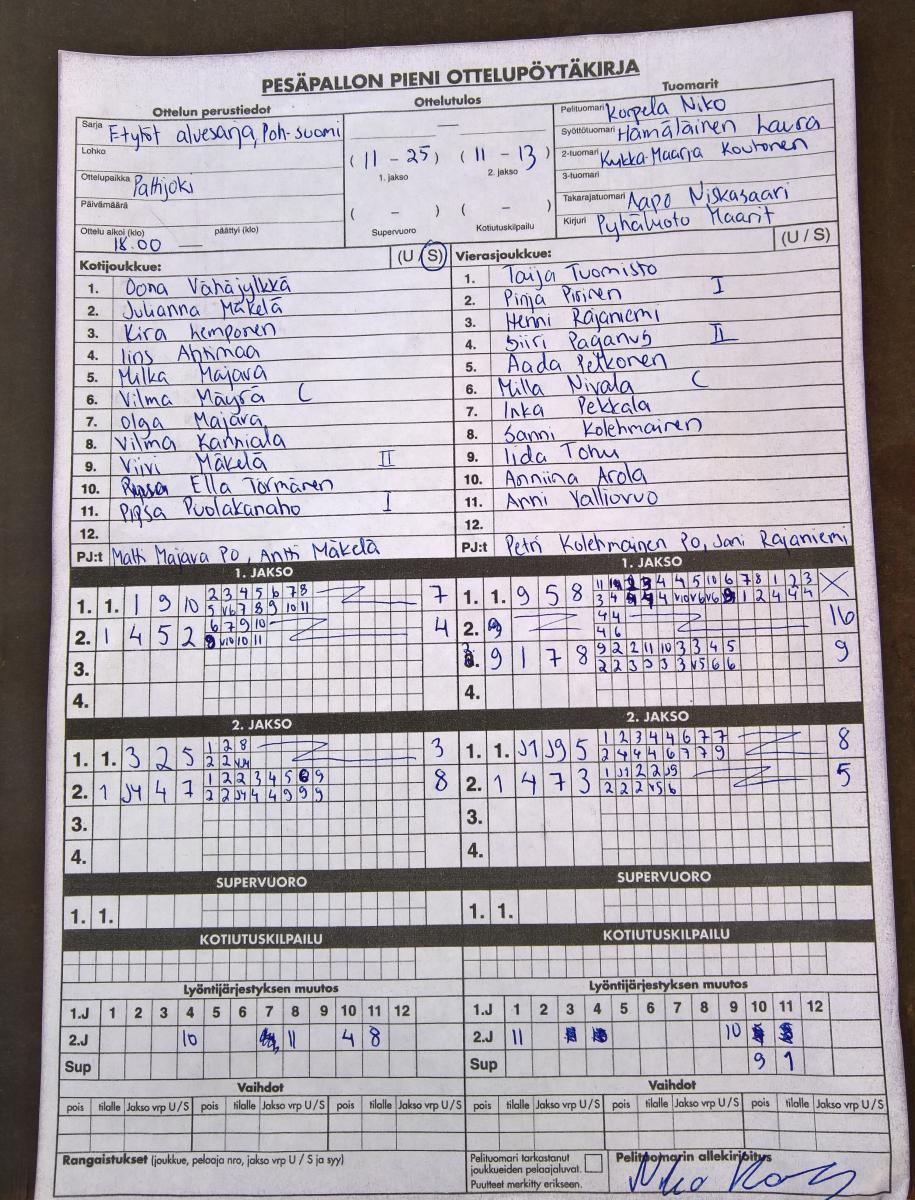 PESÄPALLON PIENI OTTELUPÖYTÄKIRJA
Ottelun perustiedot
Ottelutulos
Tuomarit
Sarja
F-tytöt aluesarja, Poh-suomi
Lohko
Ottelupaikka Pattijoki
Päivämäärä
Ottelu alkoi (klo) päättyi (klo)
18.00 —
—
( 11 - 25 ) ( 11 - 13 )
1. jakso 2. jakso
( - ) ( - )
Supervuoro Kotiutuskilpailu
Pelituomari Korpela Niko
Syöttötuomari Hämäläinen Laura
2-tuomari Kukka-Maarja Koutonen
3-tuomari
Takarajatuomari Aapo Niskasaari
Kirjuri Pyhäluoto Maarit
Kotijoukkue: (U / S)
1. Oona Vähäjylkkä
2. Julianna Mäkelä
3. Kira Lemponen
4. Ahtimaa
5. Milka Majava
6. Vilma Mäyrä C
7. Olga Majava
8. Vilma Kanniala
9. Viivi Mäkelä II
10. Ella Törmänen
11. Pipsa Puolakanaho I
12.
PJ:t Matti Majava PO, Antti Mäkelä
Vierasjoukkue: (U / S)
1. Taija Tuomisto
2. Pinja Piirinen I
3. Henni Rajaniemi
4. Siiri Paganus II
5. Aada Petkonen
6. Milla Nivala C
7. Inka Pekkala
8. Sanni Kolehmainen
9. Iida Tohu
10. Anniina Arola
11. Anni Valliovuo
12.
PJ:t Petri Kolehmainen PO, Jani Rajaniemi
1. JAKSO
1. 1. 1 9 10 2 3 4 5 6 7 8 7
5 v6 7 8 9 10 11
2. 1 4 5 2 6 7 9 10 4
v10 10 11
3.
4.
1. JAKSO
1. 1. 9 5 8
2. 4 4 16
4 6
9 1 7 8 9 2 2 11 10 3 3 4 5 9
2 2 3 3 3 3 v5 6 6
4.
2. JAKSO
1. 1. 3 2 5 1 2 8 3
2 2 v4
2. 1 J4 4 7 1 2 2 3 4 5 6 9 8
2 2 J4 4 4 9 9 9
3.
4.
2. JAKSO
1. 1. J1 J9 5 1 2 3 4 4 6 7 7 8
2 4 4 4 6 7 7 9
2. 1 4 7 3 1 J1 2 2 J9 5
2 2 2 v5 6
3.
4.
SUPERVUORO
1. 1.
SUPERVUORO
1. 1.
KOTIUTUSKILPAILU
KOTIUTUSKILPAILU
Lyöntijärjestyksen muutos
1.J 1 2 3 4 5 6 7 8 9 10 11 12
2.J 10 11 4 8
Sup
Lyöntijärjestyksen muutos
1.J 1 2 3 4 5 6 7 8 9 10 11 12
2.J 11 10
Sup 9 1
Vaihdot
pois tilalle Jakso vrp U / S pois tilalle Jakso vrp U / S pois tilalle Jakso vrp U / S
Vaihdot
pois tilalle Jakso vrp U / S pois tilalle Jakso vrp U / S pois tilalle Jakso vrp U / S
Rangaistukset (joukkue, pelaaja nro, jakso vrp U / S ja syy)
Pelituomari tarkastanut
joukkueiden pelaajaluvat.
Puutteet merkitty erikseen.
Pelituomarin allekirjoitus